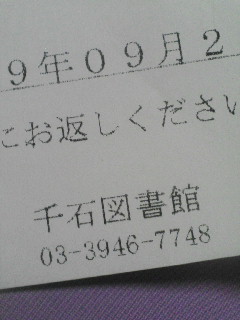 9年09月2
にお返しください
千石図書館
03-3946-7748